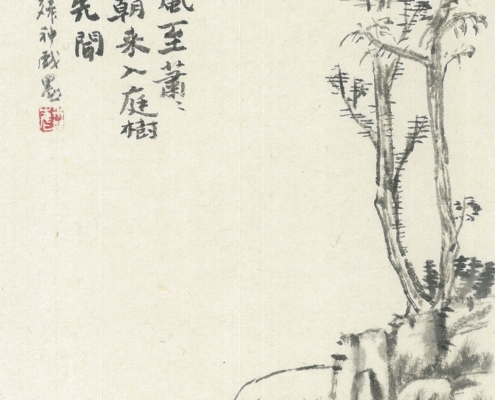 風至蕭〻
朝来入庭樹
先聞
神戲墨